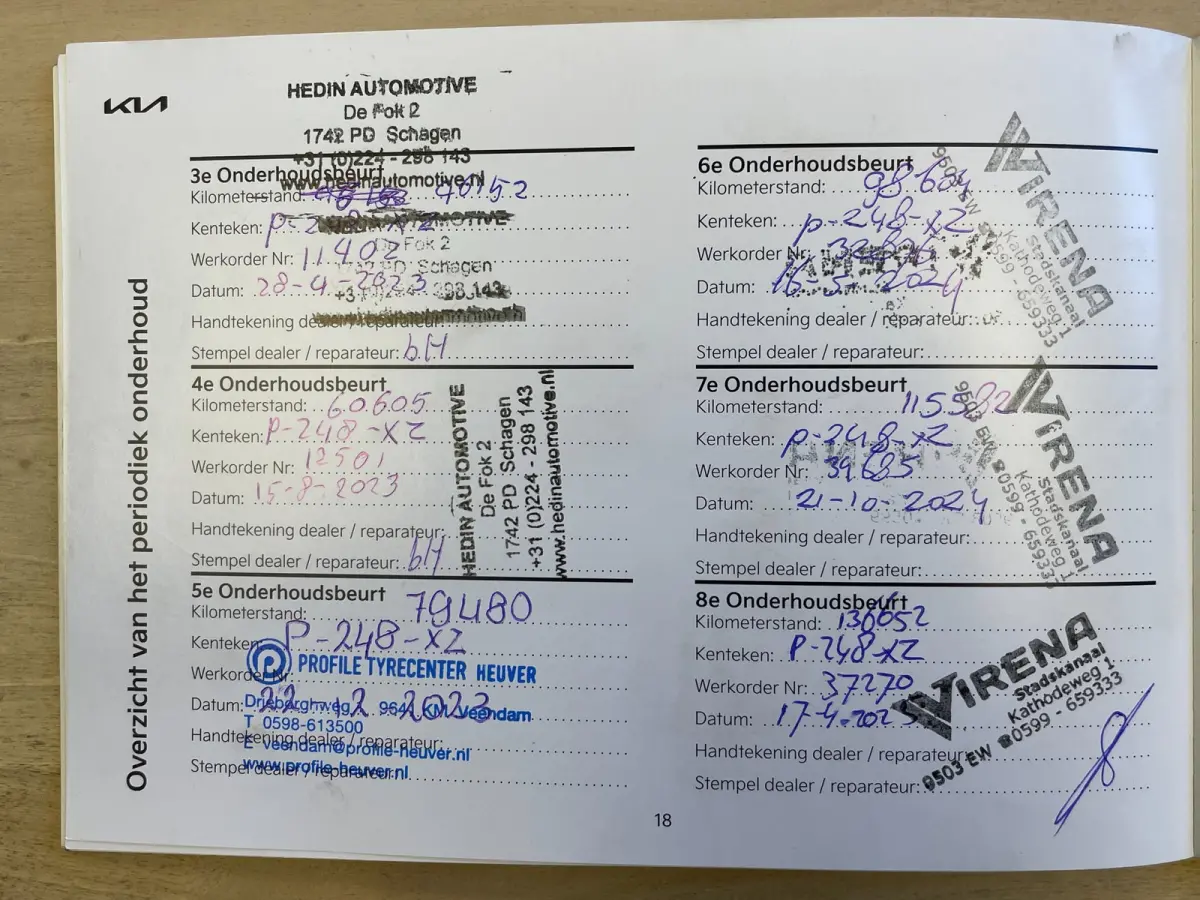 KIA
HEDIN AUTOMOTIVE
De Fok 2
1742 PD Schagen
+31 (0)224 - 298 143
www.hedinautomotive.nl
Overzicht van het periodiek onderhoud
3e Onderhoudsbeurt
Kilometerstand: 40152
Kenteken: P-248-XZ
AUTOMOTIVE
De Fok 2
Werkorder Nr: 11402
1742 PD Schagen
Datum: 28-4-2023
298 143
Handtekening dealer / reparateur:
Stempel dealer / reparateur: bH
4e Onderhoudsbeurt
Kilometerstand: 60605
Kenteken: P-248-XZ
Werkorder Nr: 12501
Datum: 15-8-2023
Handtekening dealer / reparateur:
Stempel dealer / reparateur: bH
HEDIN AUTOMOTIVE
De Fok 2
1742 PD Schagen
+31 (0)224 - 298 143
www.hedinautomotive.nl
5e Onderhoudsbeurt
Kilometerstand: 79480
Kenteken: P-248-XZ
PROFILE TYRECENTER HEUVER
Werkorder Nr:
Datum: 22-12-2023
Drieborghweg Veendam
T 0598-613500
Handtekening dealer / reparateur:
E veendam@profile-heuver.nl
Stempel dealer / reparateur:
www.profile-heuver.nl
6e Onderhoudsbeurt
Kilometerstand: 98604
Kenteken: P-248-XZ
Werkorder Nr:
Datum: 2024
Handtekening dealer / reparateur:
Stempel dealer / reparateur:
VIRENA
Stadskanaal
Kathodeweg 1
0599 - 659333
7e Onderhoudsbeurt
Kilometerstand: 115582
Kenteken: P-248-XZ
Werkorder Nr: 39685
Datum: 21-10-2024
Handtekening dealer / reparateur:
Stempel dealer / reparateur:
VIRENA
Stadskanaal
Kathodeweg 1
9503 EW ☎0599 - 659333
8e Onderhoudsbeurt
Kilometerstand: 136652
Kenteken: P-248-XZ
Werkorder Nr: 37270
Datum: 17-4-2025
Handtekening dealer / reparateur:
Stempel dealer / reparateur:
VIRENA
Stadskanaal
Kathodeweg 1
9503 EW ☎0599 - 659333
18